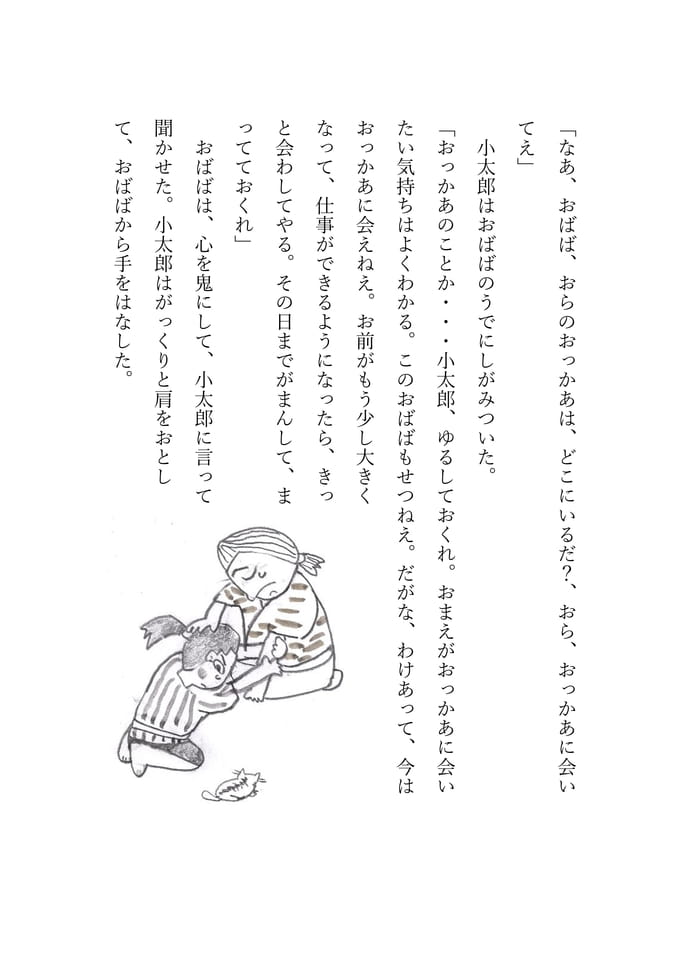 「なあ、おばば、おらのおっかあは、どこにいるだ？、おら、おっかあに会い
てえ」
小太郎はおばばのうでにしがみついた。
「おっかあのことか・・・小太郎、ゆるしておくれ。おまえがおっかあに会い
たい気持ちはよくわかる。このおばばもせつねえ。だがな、わけあって、今は
おっかあに会えねえ。お前がもう少し大きく
なって、仕事ができるようになったら、きっ
と会わしてやる。その日までがまんして、ま
ってておくれ」
おばばは、心を鬼にして、小太郎に言って
聞かせた。小太郎はがっくりと肩をおとし
て、おばばから手をはなした。